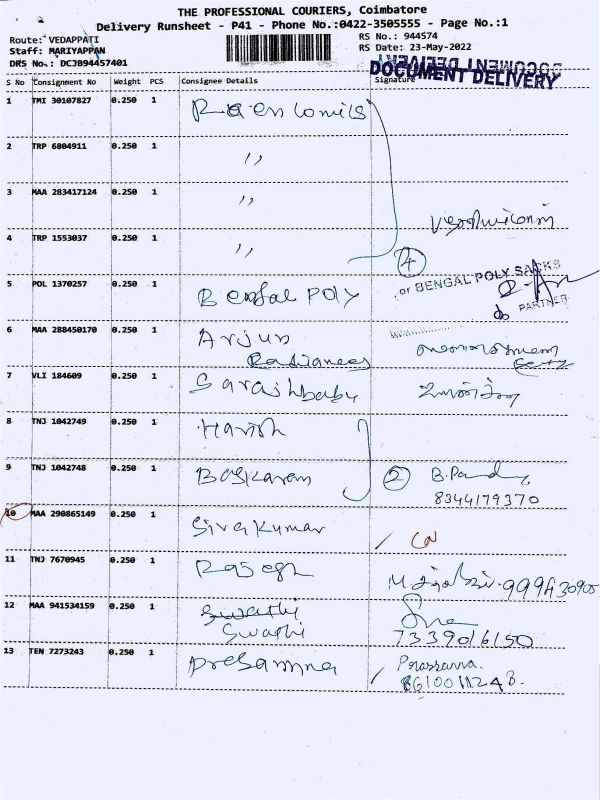 THE PROFESSIONAL COURIERS, Coimbatore
Delivery Runsheet - P41 - Phone No.:0422-3505555 - Page No.:1
Route: VEDAPPATI
RS No.: 944574
Staff: MARIYAPPAN
RS Date: 23-May-2022
DRS No.: DCJB94457401
DOCUMENT DELIVERY
DOCUMENT DELIVERY
S No Consignment No Weight PCS Consignee Details Signature
1 TMI 30107827 0.250 1
2 TRP 6804911 0.250 1 ,,
3 MAA 283417124 0.250 1 ,,
4 TRP 1553037 0.250 1 ,,
4
5 POL 1370257 0.250 1 Bengal Poly
or BENGAL POLY SACKS
PARTNER
6 MAA 288450170 0.250 1 Arjun
Radiances
7 VLI 184609 0.250 1
8 TNJ 1042749 0.250 1 Harish
9 TNJ 1042748 0.250 1 Baskaran 2
8344179370
10 MAA 290865149 0.250 1 Sivakumar
11 TNJ 7670945 0.250 1
12 MAA 941534159 0.250 1 Swathi
Swathi
7339016150
13 TEN 7273243 0.250 1 Prasanna.